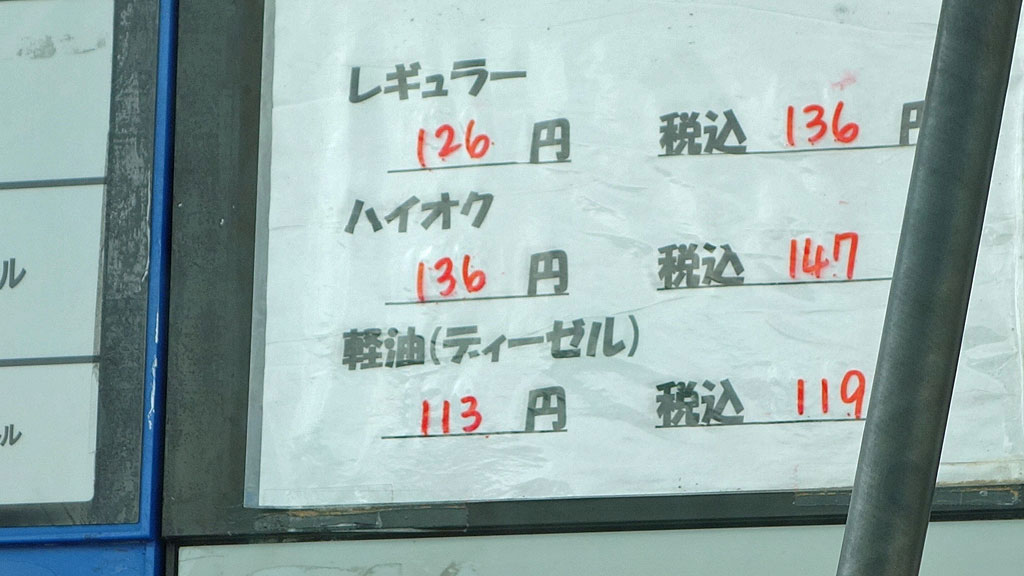 レギュラー
126 円 税込 136 円
ハイオク
136 円 税込 147
軽油(ディーゼル)
113 円 税込 119
ル
ール